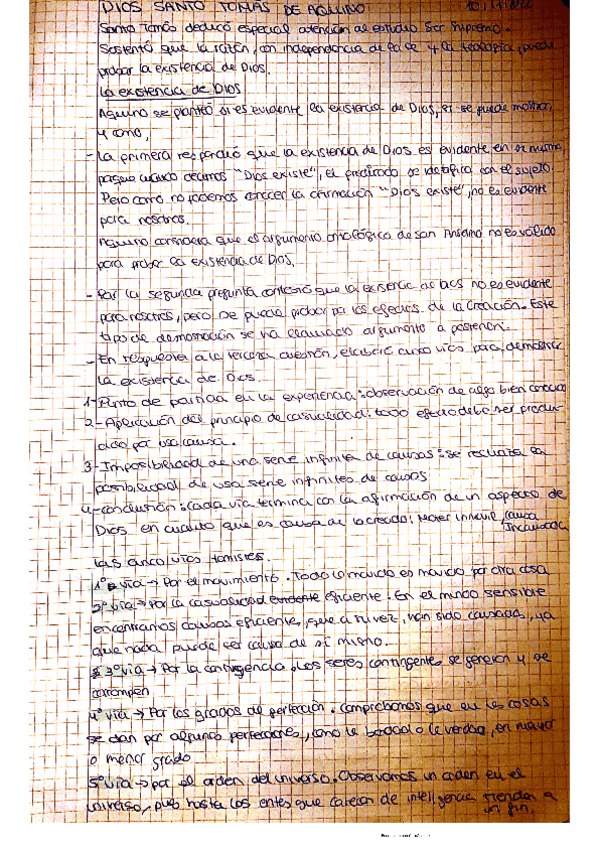 DIOS SANTO TOMÁS DE AQUINO
Santo Tomás dedicó especial atención al estudio Ser Supremo.
Sostentó que la razón, con independencia de la fe y la teología, puede
probar la existencia de Dios.
La existencia de Dios
Aquino se planteó si es evidente la existencia de Dios, si se puede mostrar,
y como,
- La primera respondió que la existencia de Dios es evidente en si misma,
porque cuando decimos "Dios existe", el predicado se identifica con el sujeto.
Pero como no podemos conocer la afirmación "Dios existe", no es evidente
para nosotros.
Aquino considera que el argumento ontológico de san Anselmo no es válido
para probar la existencia de Dios.
- Por la segunda pregunta contestó que la existencia de Dios no es evidente
para nosotros, pero se puede probar por los efectos de la creación. Este
tipo de demostración se ha llamado argumento a posteriori.
- En respuesta a la tercera cuestión, elaboró cinco vías para demostrar
la existencia de Dios.
1- Punto de partida en la experiencia: observación de algo bien conocido
2- Aplicación del principio de causalidad: todo efecto debe ser produ-
cido por una causa.
3- Imposibilidad de una serie infinita de causas: se rechaza la
posibilidad de una serie infinitas de causas
4- conclusión: cada vía termina con la afirmación de un aspecto de
Dios en cuanto que es causa de lo creado: Motor inmóvil, causa
Incausada
Las cinco vías tomistas.
1º vía → Por el movimiento. Todo lo movido es movido por otra cosa
2º vía → Por la causalidad eficiente: En el mundo sensible
encontramos causas eficiente, que a su vez, han sido causada, ya
que nada puede ser causa de sí mismo.
3º vía → Por la contingencia. Los seres contingentes se generan y se
corrompen
4º vía → Por los grados de perfección. Comprobamos que en las cosas
se dan por algunas perfecciones, como la bondad o la verdad, en mayor
o menor grado
5º vía → por el orden del universo. Observamos un orden en el
universo, pues hasta los entes que carecen de inteligencia tienden a
un fin.